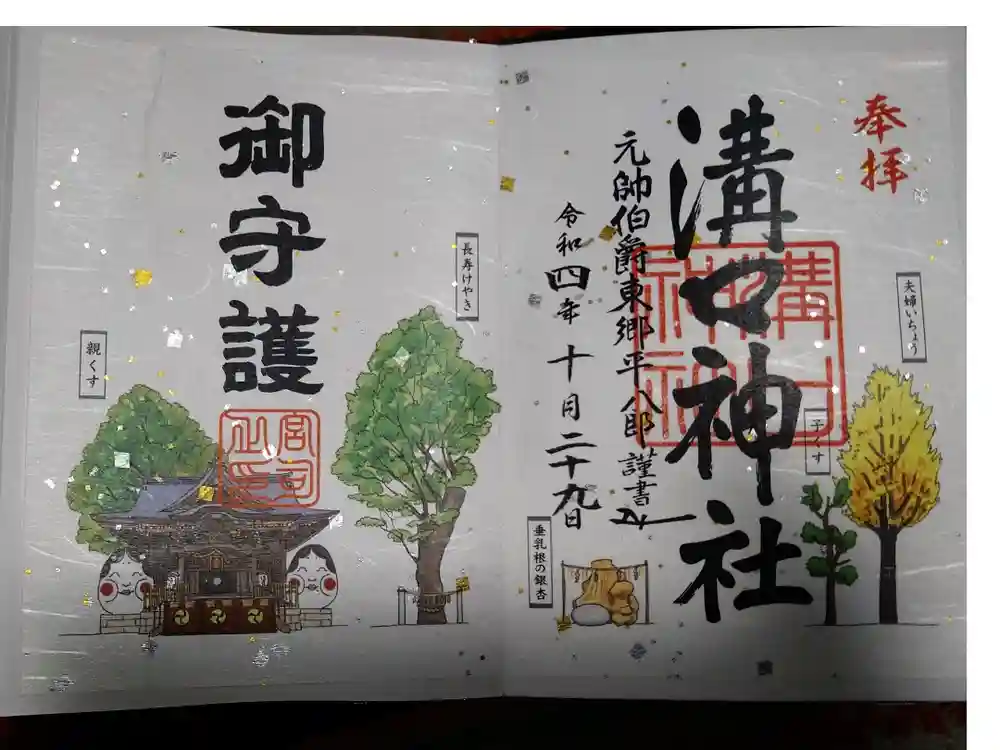 奉拝
夫婦いちょう
溝口神社
溝口
神社
子くす
元帥伯爵東郷平八郎 謹書
令和四年 十月 二十九日
垂乳根の銀杏
長寿けやき
御守護
宮司
之印
親くす